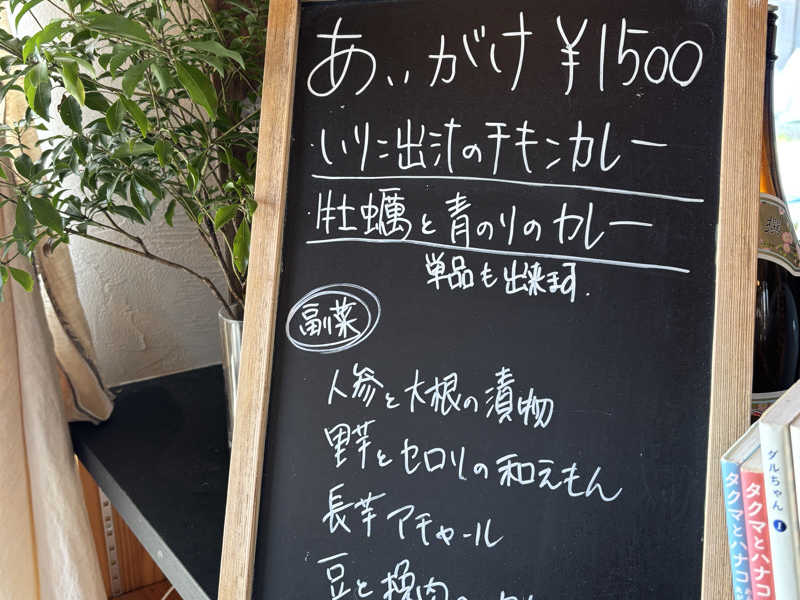 あいがけ ¥1500
いりこ出汁のチキンカレー
牡蠣と青のりのカレー
単品も出来ます.
副菜
人参と大根の漬物
里芋とセロリの和えもん
長芋アチャール
豆と挽肉の
タクマとハナコ
タクマとハナコ
ダルちゃん 1